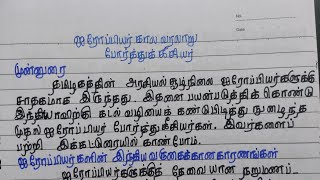 No.:
Date:
ஐரோப்பியர் கால வரலாறு
போர்த்துக்கீசியர்
முன்னுரை
தமிழகத்தின் அரசியல் சூழ்நிலை ஐரோப்பியர்களுக்கு
சாதகமாக இருந்தது. இதனை பயன்படுத்திக் கொண்டு
இந்தியாவிற்கு கடல் வழியைக் கண்டுபிடித்து நுழைந்த
முதல் ஐரோப்பியர் போர்த்துக்கீசியர்கள். இவர்களைப்
பற்றி இக்கட்டுரையில் காண்போம்.
ஐரோப்பியர்களின் இந்திய வருகைக்கான காரணங்கள்
ஐரோப்பியர்களுக்குத் தேவையான நறுமணப்